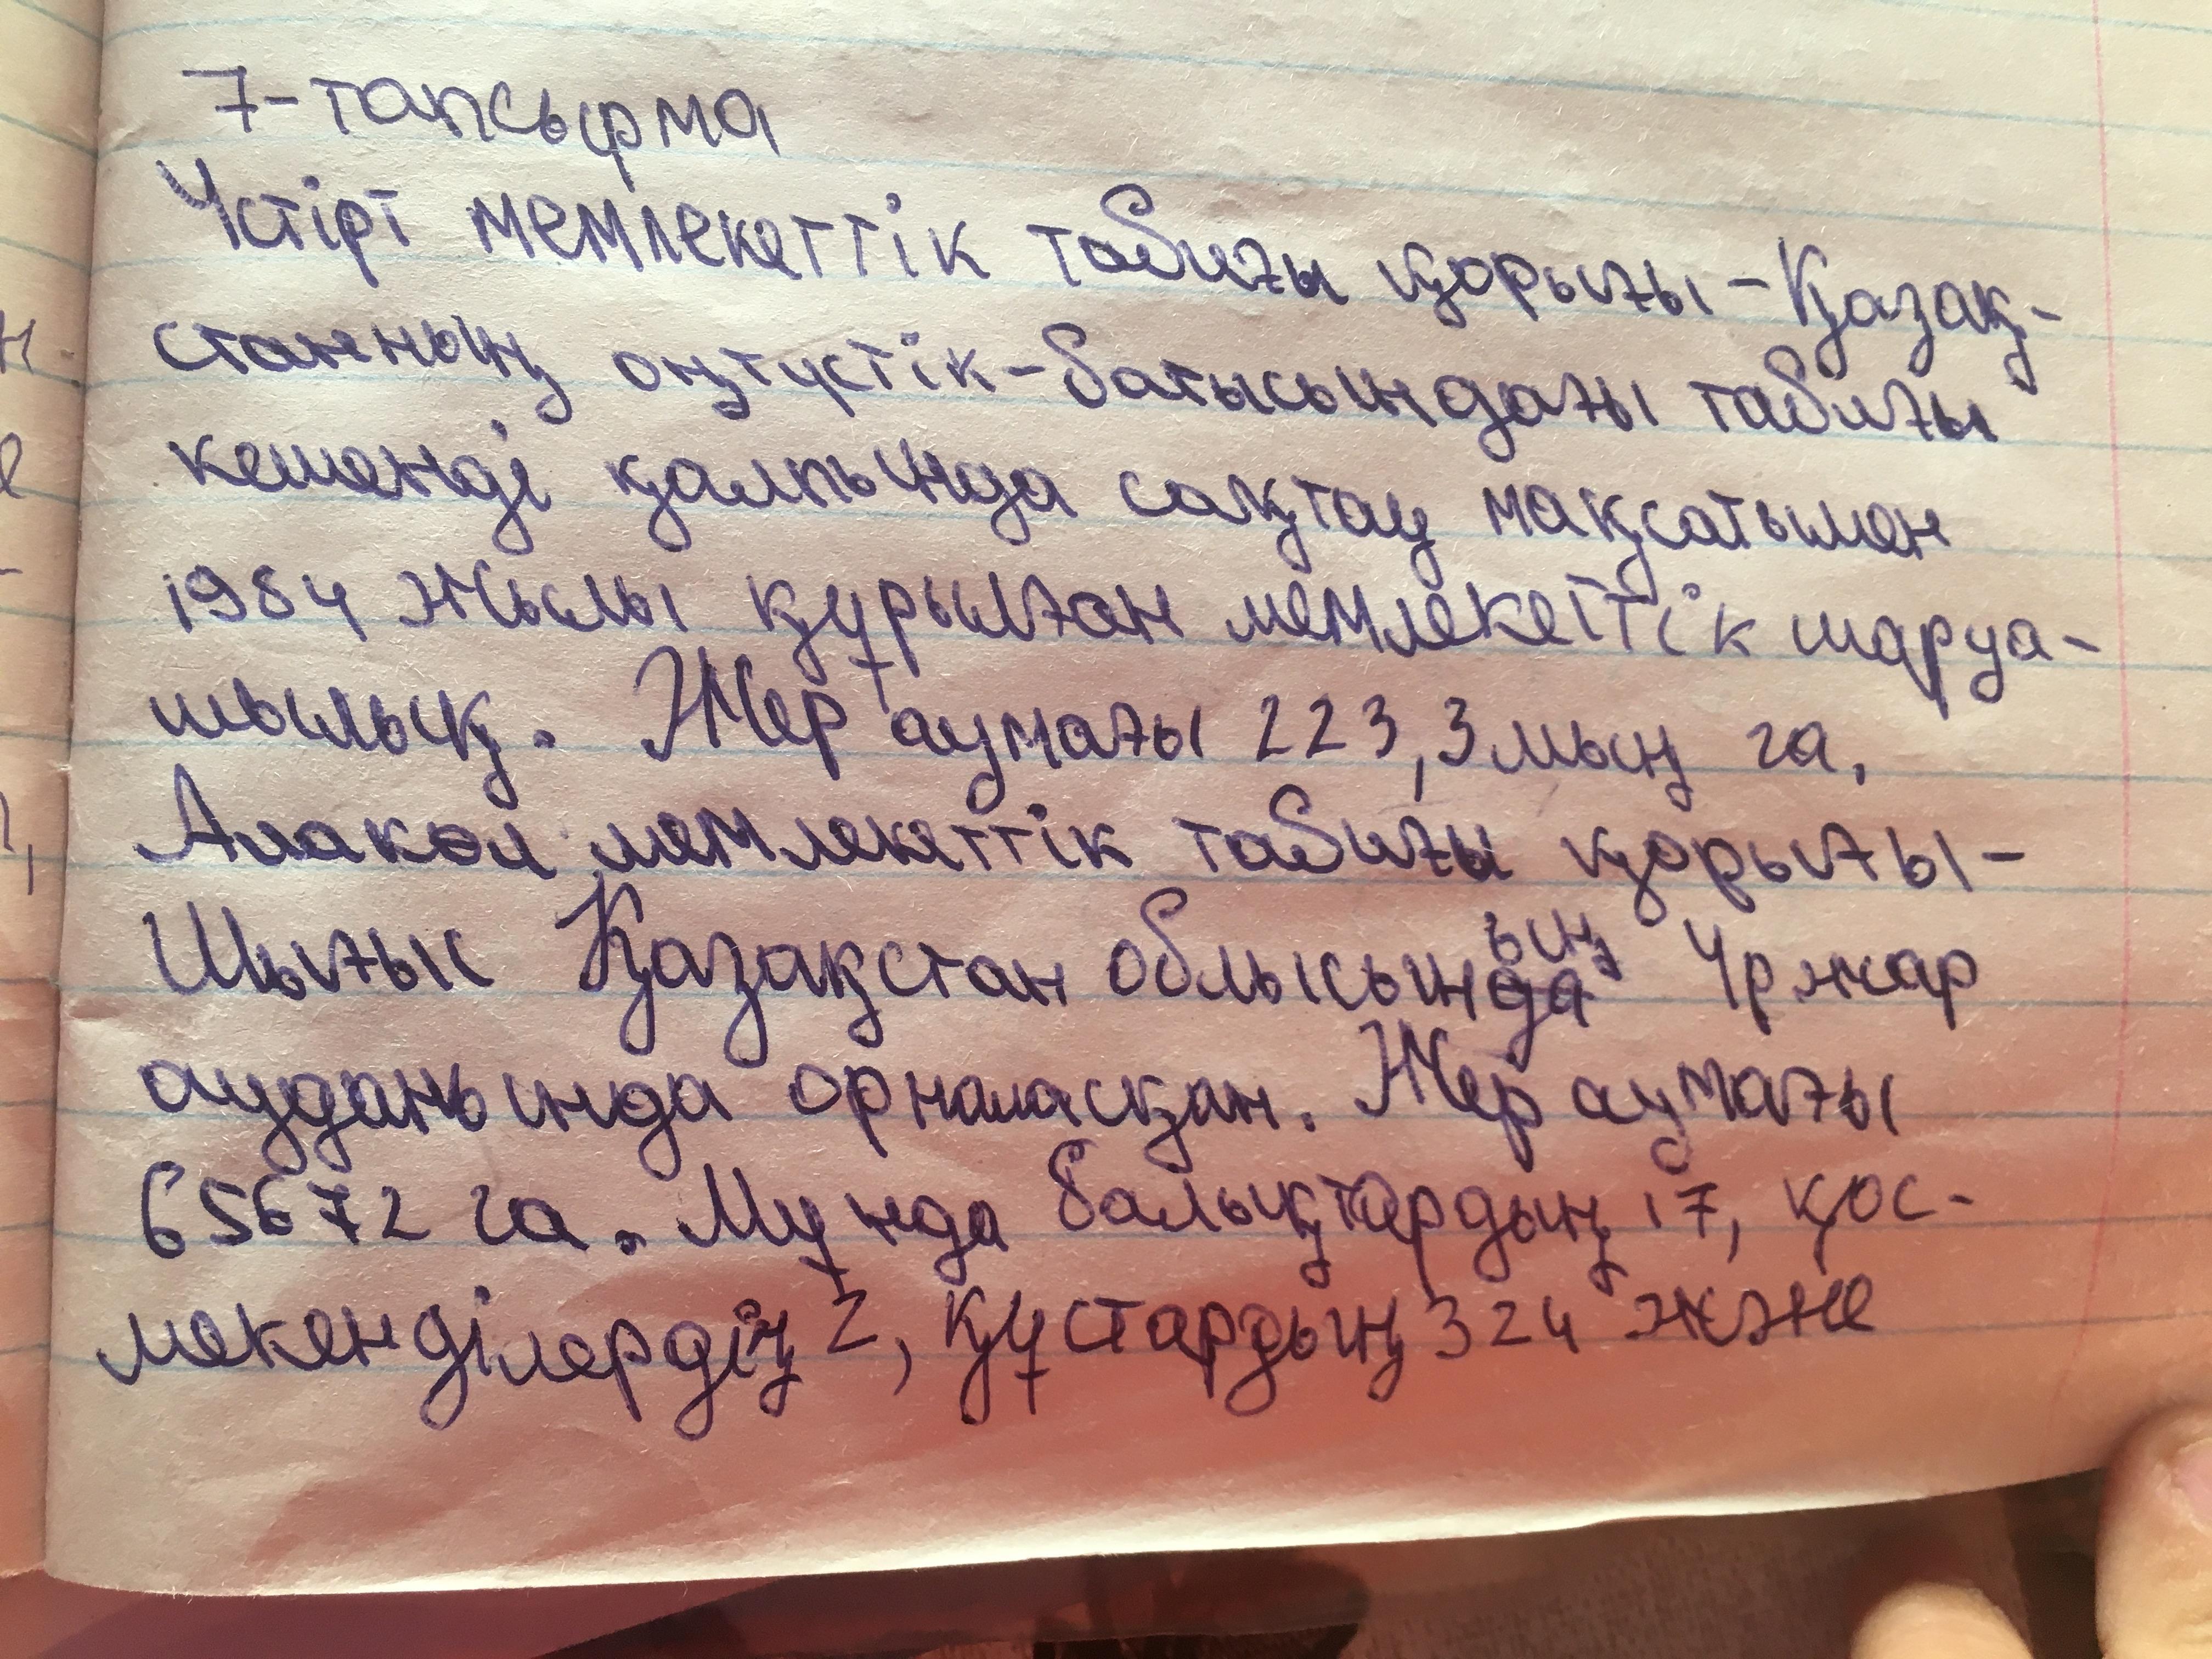 7-тапсырма
Үстірт мемлекеттік табиғы қорығы - Қазақ-
станның оңтүстік-батысындағы табиғы
кешенді қалпында сақтау мақсатымен
1984 жылы құрылған мемлекеттік шаруа-
шылық. Жер аумағы 223,3 мың га.
Алакөл мемлекеттік табиғы қорығы -
Шығыс Қазақстан облысының Үржар
ауданында орналасқан. Жер аумағы
65672 га. Мұнда балықтардың 17, қос-
мекенділердің 2, құстардың 324 және